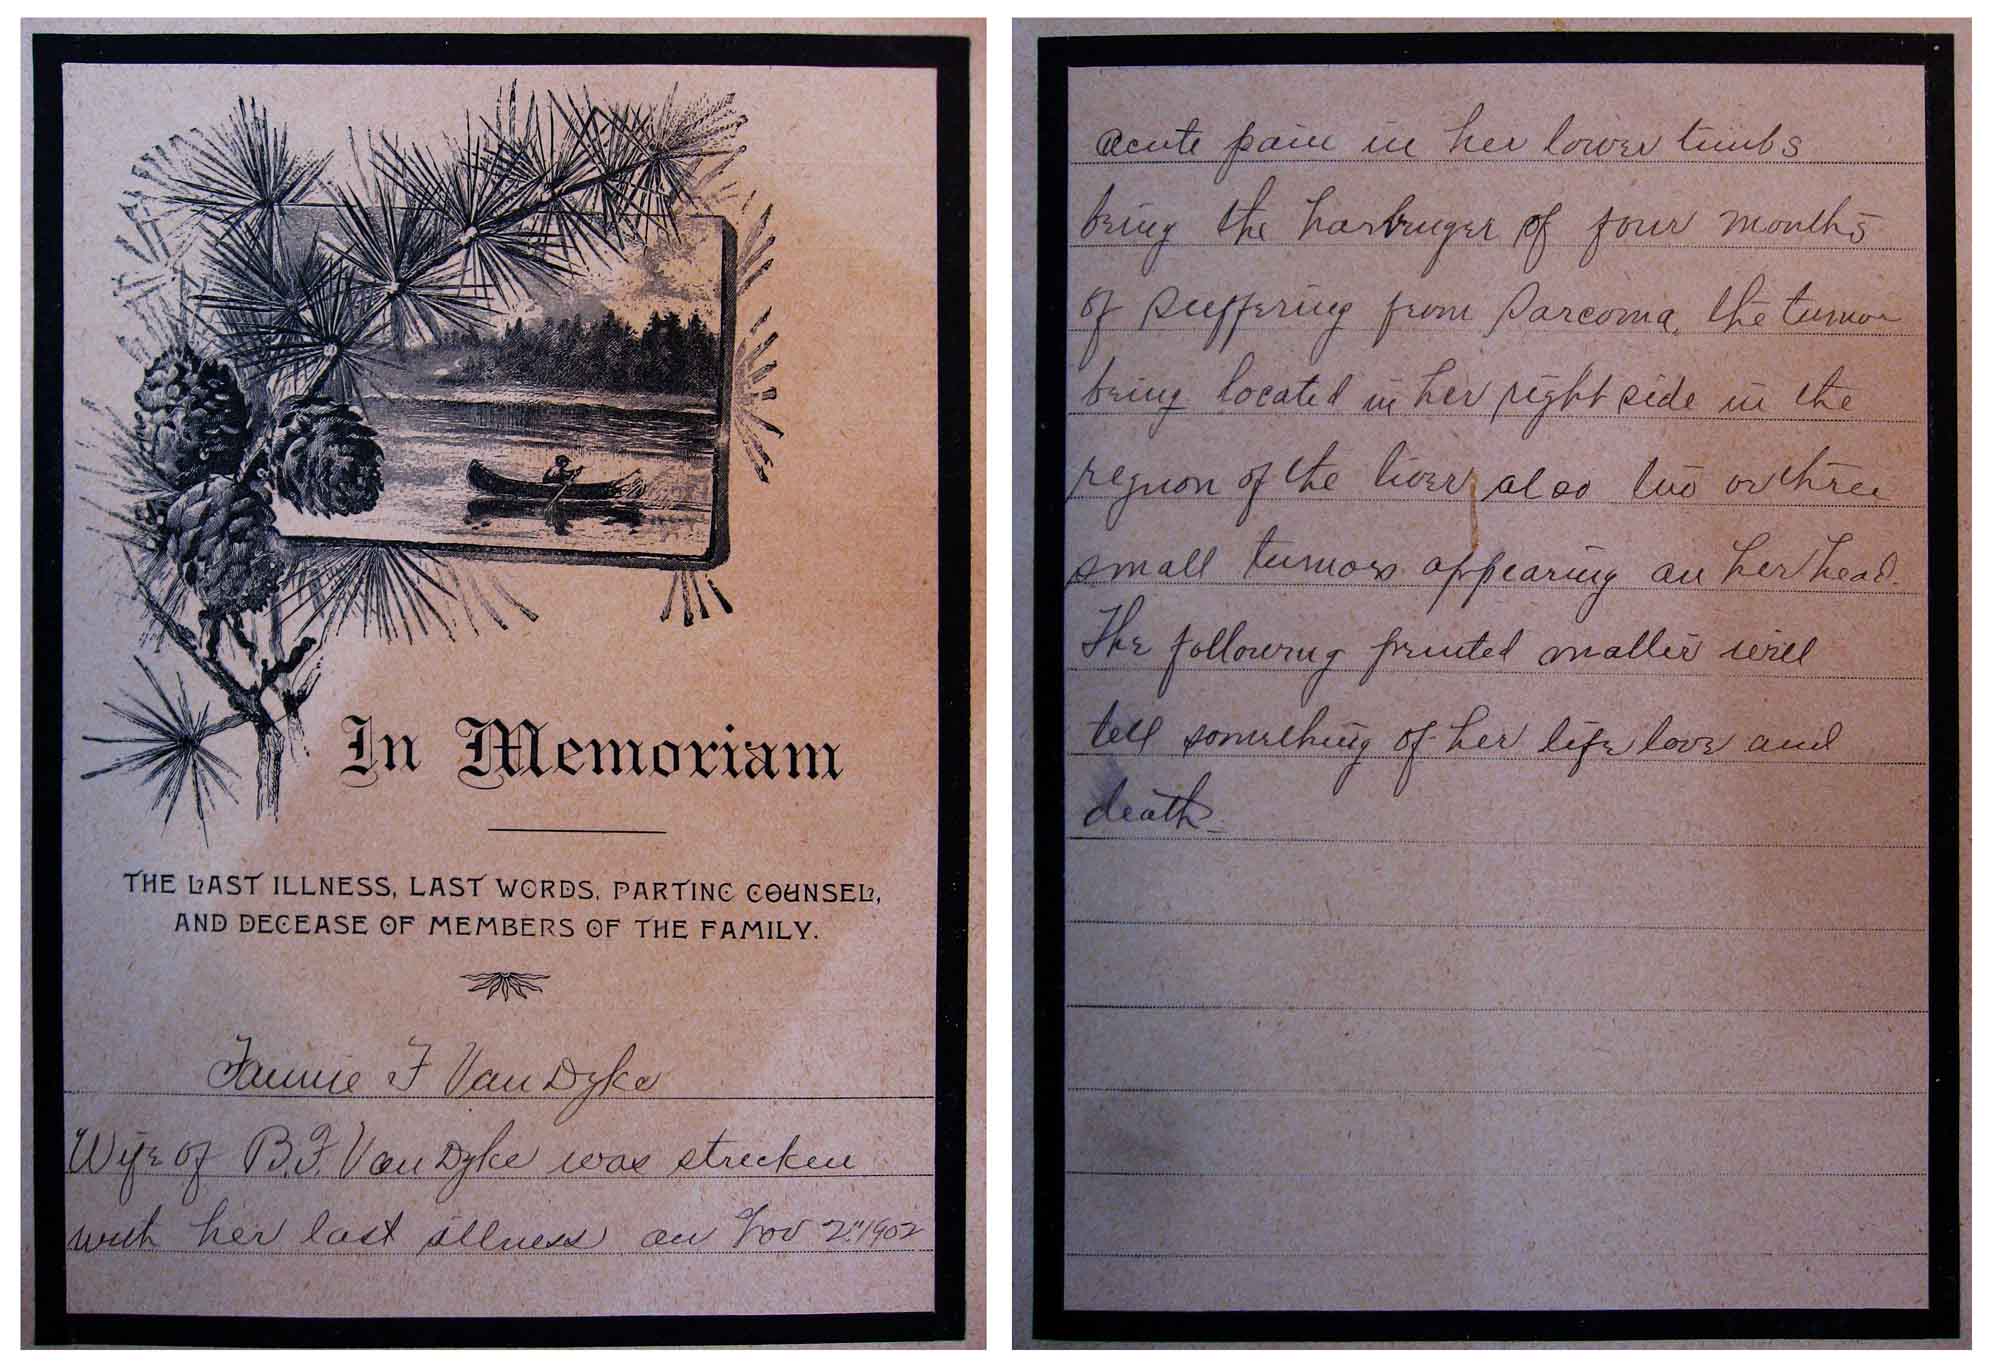 In Memoriam
THE LAST ILLNESS, LAST WORDS, PARTING COUNSEL,
AND DECEASE OF MEMBERS OF THE FAMILY.
Fannie F Van Dyke
Wife of B.F. Van Dyke was stricken
with her last illness on Nov 2" 1902
acute pain in her lower limbs
being the harbinger of four months
of suffering from Sarcoma, the tumor
being located in her right side in the
region of the liver, also two or three
small tumors appearing on her head.
The following printed matter will
tell something of her life love and
death.